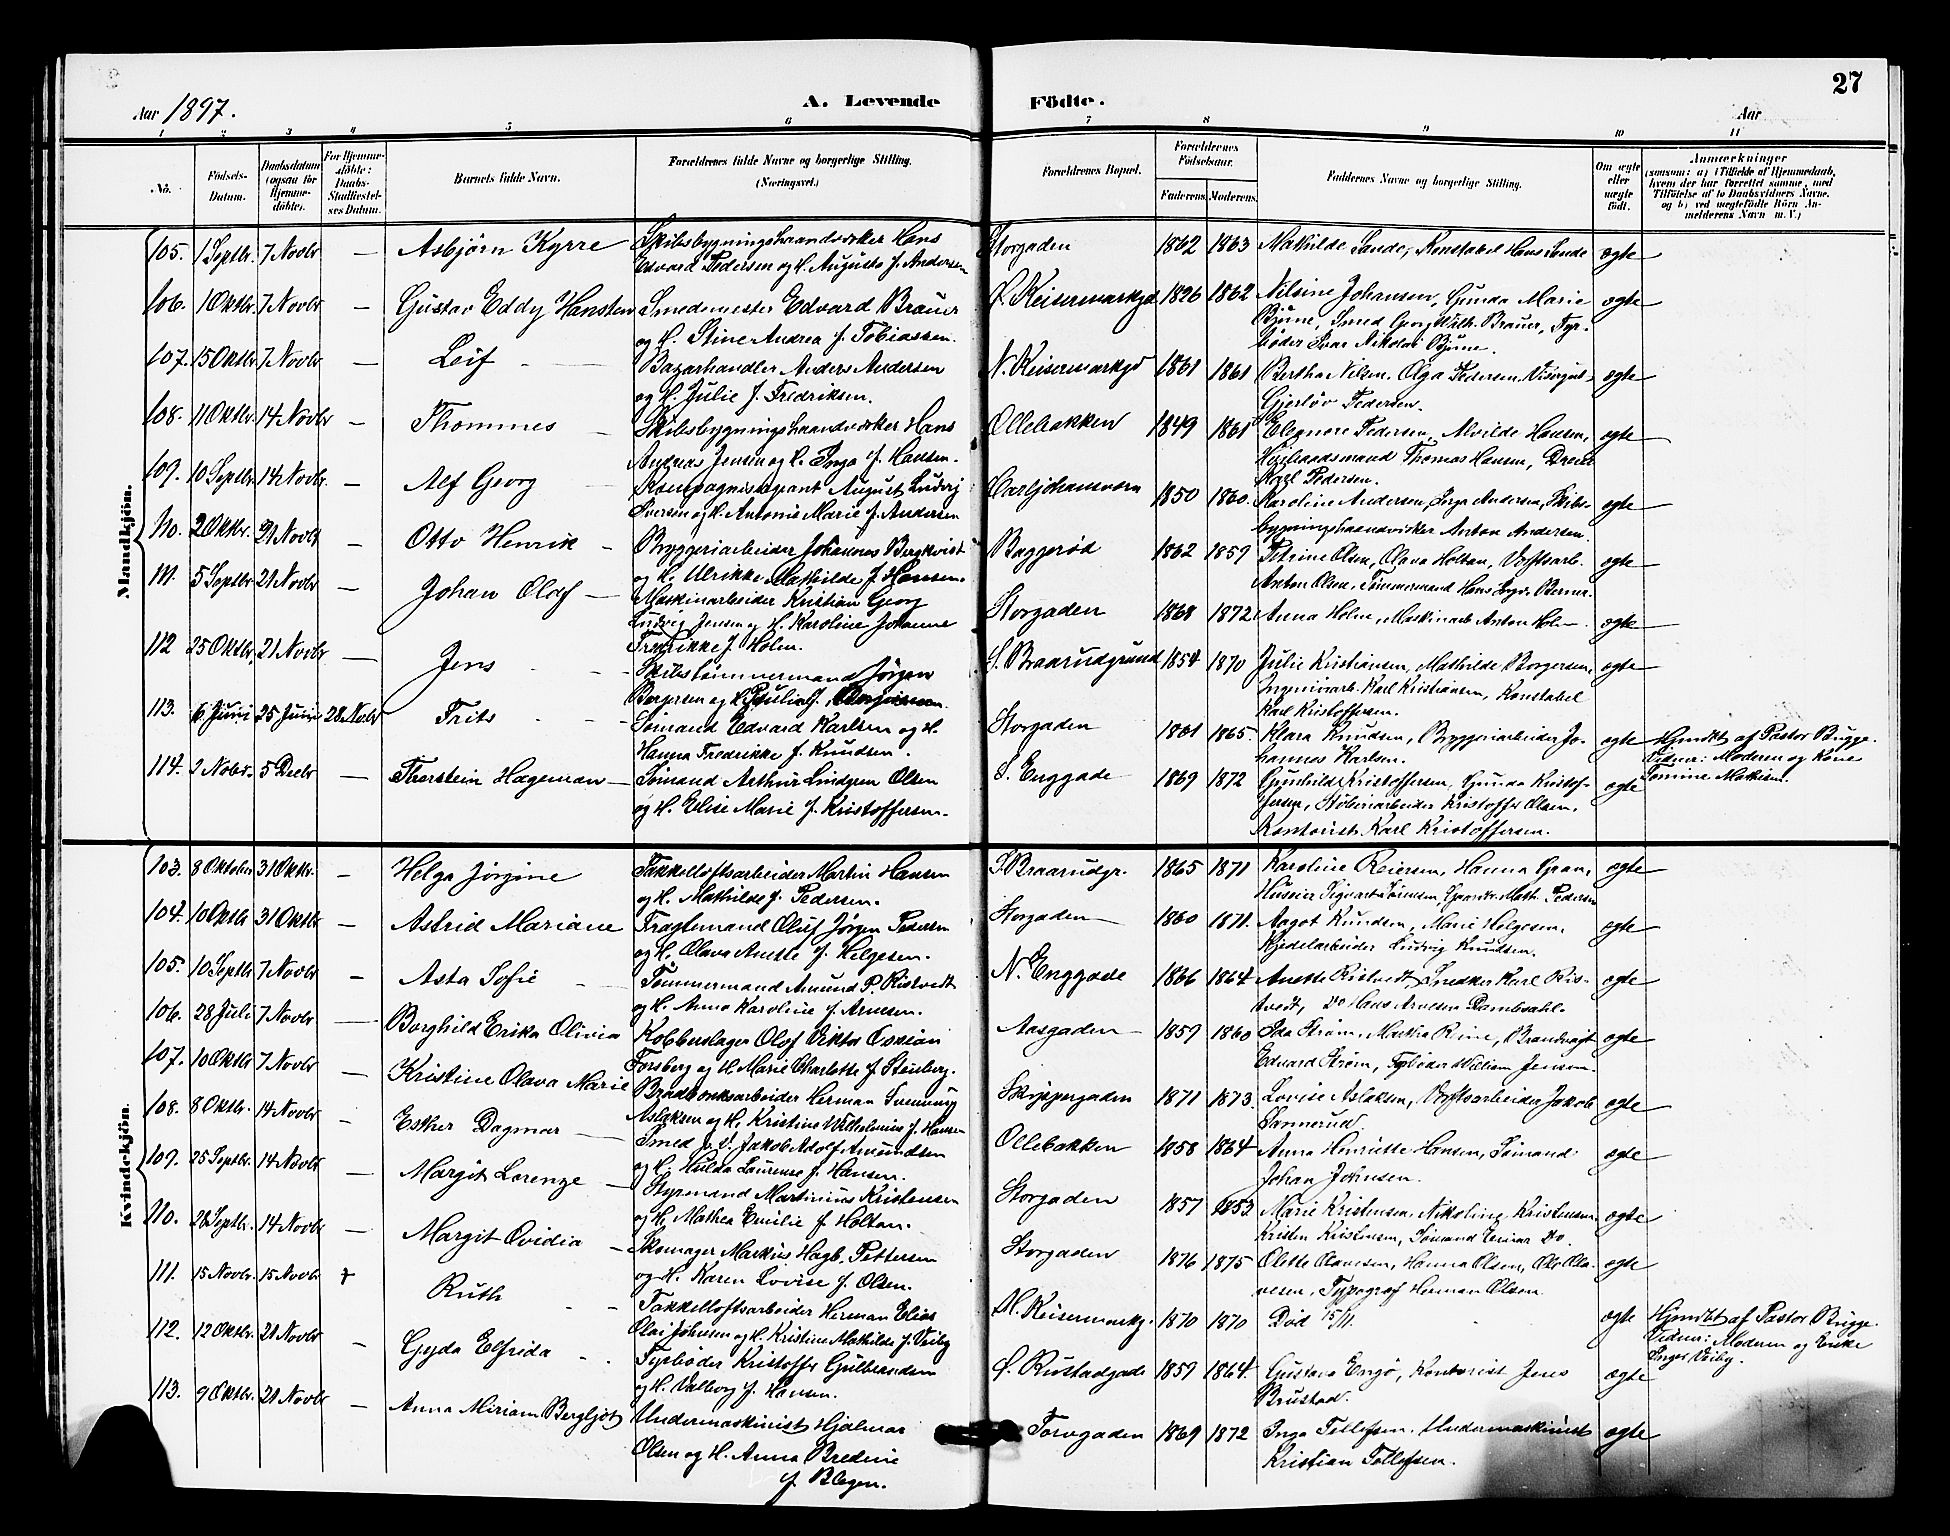 Aar 1897.
A. Levende Födte.
Aar
27
1 2 3 4 5 6 7 8 9 10 11
No. Födsels-Datum. Daabsdatum (ogsaa for Hjemme-döbte). For Hjemme-döbte: Daabs-Stadfæstel-ses Datum. Barnets fulde Navn. Forældrenes fulde Navne og borgerlige Stilling. (Næringsvei.) Forældrenes Bopæl. Forældrenes Födselsaar. Faderens. Moderens. Faddernes Navne og borgerlige Stilling. Om ægte eller uægte födt. Anmærkninger (saasom: a) i Tilfælde af Hjemmedaab, hvem der har forrettet samme, med Tilföielse af to Daabsvidners Navne, og b) ved uægtefödte Börn Anmelderens Navn m. V.)
Mandkjön.
105. 1 Septbr. 7 Novbr — Asbjörn Kyrre Skibsbygningshaandværker Hans Storgaden 1862 1863 Mathilde Sande, Konstabel Hans Sande ægte
Edvard Pedersen og H. Augusta f. Andersen
106. 1 Oktbr. 7 Novbr — Gustav Eddy Hansten Smedemester Edvard Brauer Keisermarkgd 1826 1862 Nilsine Johansen, Gunda Marie ægte
Bjune, Smed Georg Wilh. Brauer, Fyr-
og H. Stine Andrea f. Tobiassen. böder Ivar Nikolai Bjune.
107. 15 Oktbr. 7 Novbr — Leif Bazarhandler Anders Andersen N. Keisermarkgd 1861 1861 Bertha Nilsen, Olga Pedersen, ægte
og H. Julie f. Fredriksen. Pedersen.
108. 11 Oktbr. 14 Novbr — Thommes Skibsbygningshaandværker Hans Ollebakken 1849 1861 Eleonore Pedersen, Alvilde Hansen, ægte
Andreas Jensen og H. Inga f. Hansen. Thomas Hansen,
Karl Pedersen.
109. 10 Septbr. 14 Novbr. — Alf Georg Kompagnisergeant August Ludvig Carljohansværn 1850 1860. Karoline Andersen, Andersen, Skibs- ægte
Iversen og H. Antonie Marie f. Andersen bygningshaandværker Anton Andersen.
110. 2 Oktbr. 21 Novbr — Otto Henrik Bryggeriarbeider Johannes Bergkvist Baggeröd 1862 1859 Petrine Olsen, Olava Holtan, Verftsarb. ægte
og H. Ulrikke Mathilde f. Hansen. Anton Olsen, Tömmermand Hans
111. 5 Septbr 21 Novbr — Johan Olaf — Maskinarbeider Kristian Georg Storgaden 1868 1872 Anna Holm, Maskinarb Anton Holm ægte
Ludvig Jensen og H. Karoline Johanne
Fredrikke f. Holm.
112 25 Oktbr. 21 Novbr — Jens Skibstömmermand Jörgen S. Braarudgrund 1854 1870 Julie Kristiansen, Mathilde Borgersen, ægte
Borgersen og H. Karl Kristiansen, Konstabel
Karl Kristoffersen.
113. 6 Juni 25 Juni 28 Novbr Frits Sömand Edvard Karlsen og H. Storgaden 1865. Klara Knudsen, Bryggeriarbeider Jo- ægte Hjmdbt af Pastor Bugge.
Hanna Fredrikke f. Knudsen. hannes Karlsen. Vidner: Moderen og Kone
114. 2 Novbr. 5 Decbr — Thorstein Hageman — Sömand Arthur Lindgren Olsen S. Enggade 1869 1872 Gunhild Kristoffersen, Gunda Kristof- ægte Tomine Mathisen.
og H. Elise Marie f. Kristoffersen. fersen, Stöberiarbeider Kristoffer Olsen,
Kontorist Karl Kristoffersen.
Kvindekjön.
103. 8 Oktober 31 Oktbr. — Helga Jörgine Takkelloftsarbeider Martin Hansen S. Braarudgr. 1865 1871 Karoline Reiersen, Hanna Gran, ægte
og H. Mathilde f. Pedersen. Pedersen
104. 10 Oktbr 31 Oktbr — Astrid Mariane Fragtemand Oluf Jörgen Pedersen Storgaden 1860 1871. Aagot Knudsen, Marie Helgesen, ægte
og H. Olava Anette f. Helgesen. Kjedelarbeider Ludvig Knudsen.
105. 10 Septbr 7 Novbr — Asta Sofie Tömmermand Amund P. Ristvedt N. Enggade 1866 1864 Anette Ristvedt, Snedker Karl Ris- ægte
og H. Anna Karoline f. Arnesen. tvedt, Do Hans Arnesen
106. 28 Juli 7 Novbr — Borghild Erika Olivia Kobberslager Olof Viktor Aasgaden 1859 1860 Ida Ström, Brandvagt ægte
Forsberg og H. Marie Charlotte f. Stenberg. Edvard Ström, Fyrböder William Jensen.
107. 10 Oktbr 7 Novbr — Kristine Olava Marie Herman Skippergaden 1871 1873. Lovise Aslaksen, Verftsarbeider Jakob ægte
Aslaksen og H. Kristine Wilhelmine f. Hansen Sannerud.
108. 8 Oktbr. 14 Novbr — Esther Dagmar — Smed Jakob Adolf Amundsen Ollebakken 1858 1864 Anna Henriette Hansen, Sömand ægte
og H. Hulda Laurense f. Hansen. Johan Johnsen.
109. 25 Septbr. 14 Novbr — Margit Lorenze — Styrmand Martinius Kristensen Storgaden 1857 1853 Marie Kristensen, Nikoline Kristensen, ægte
og H. Mathea Emilie f. Holtan. Kristen Kristensen, Sömand Do.
110. 26 Septbr. 14 Novbr — Margit Ovidia — Skomager Markus Hagb. Pettersen Storgaden 1876 1875 Olette Olavesen, Hanna Olsen, Ole Ola- ægte
og H. Karen Lovise f. Olsen. vesen, Typograf Herman Olsen.
111. 15 Novbr. 15 Novbr. † Ruth Takkelloftsarbeider Herman Elias Keisermarkg. 1870 1870 Död 15/11. ægte Hjmdbt af Pastor Bugge.
Olai Johnsen og H. Kristine Mathilde f. Veiby Vidner: Moderen og Enke
Inger Veiby.
112. 12 Oktbr. 21 Novbr — Gyda Elfrida Fyrböder Kristoffer Gulbrandsen Rustadgade 1857 1864. Gustava Engö, Kontorist Jens ægte
og H. Valborg f. Hansen. Brustad.
113. 9 Oktbr. 21 Novbr — Anna Miriam Bergljot Undermaskinist Hjalmar Torvgaden 1869 1872 Inga Tollefsen, Undermaskinist ægte
Olsen og H. Anna Bredine Kristian Tollefsen.
f. Blegen.